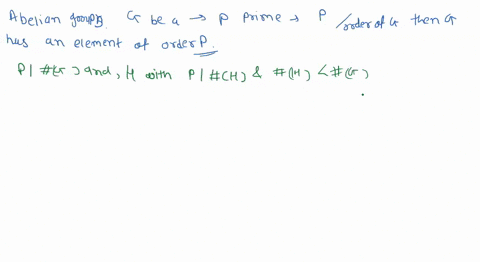 Abelian group G be a → P prime → P /order of G then G
has an element of order P.
P | #(G) and, H with P | #(H) & #(H) < #(G)